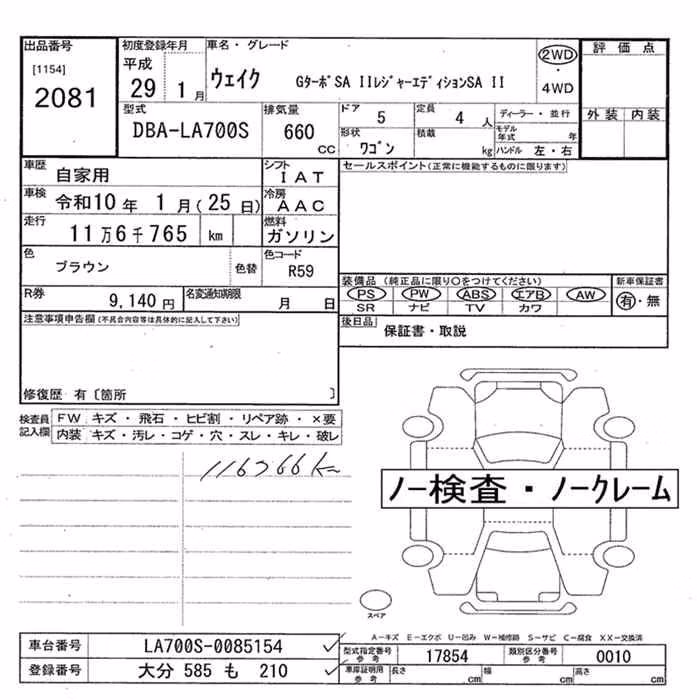 出品番号
[1154]
2081
初度登録年月
平成
29 1月
車名・グレード
ウェイク GターボSA IIレジャーエディションSA II
2WD
・
4WD
評価点
外装 内装
型式
DBA-LA700S
排気量
660
CC
ドア
5
定員
4 人
ディーラー・並行
形状
ワゴン
積載
kg
モデル年式 年
ハンドル 左・右
車歴
自家用
シフト
IAT
セールスポイント(正常に機能するものに限ります)
車検
令和10年 1月(25日)
冷房
AAC
走行
11万6千765 km
燃料
ガソリン
色
ブラウン
色替
色コード
R59
装備品(純正品に限り○をつけてください)
PS PW ABS エアB AW
SR ナビ TV カワ
新車保証書
有・無
R券
9,140円
名変通知期限
月 日
後日品
保証書・取説
注意事項申告欄(不具合内容等は具体的に記入して下さい)
修復歴 有〔箇所 〕
検査員記入欄
FW キズ・飛石・ヒビ割・リペア跡・×要
内装 キズ・汚レ・コゲ・穴・スレ・キレ・破レ
116766km
ノー検査・ノークレーム
スペア
A-キズ E-エクボ U-凹み W-補修跡 S-サビ C-腐食 XX-交換済
車台番号 LA700S-0085154
型式指定番号参考 17854
類別区分番号参考 0010
登録番号 大分 585 も 210
車庫証明用参考 長さ cm 幅 cm 高さ cm